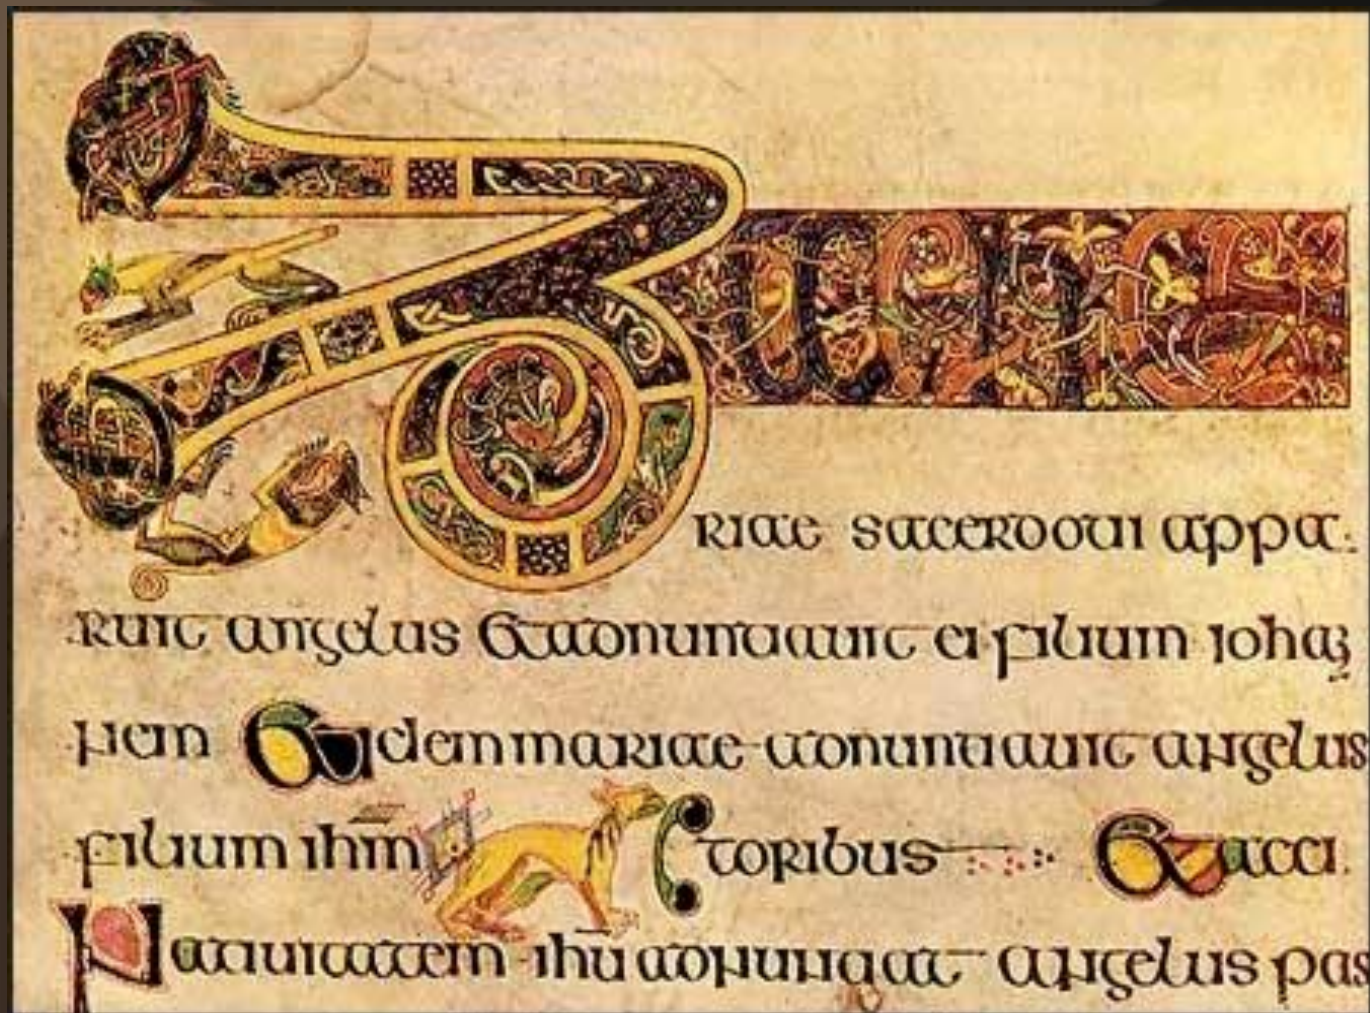 Zacha
riae sacerdoti appa
ruit angelus & adnuntiauit ei filium iohan
nem & idem mariae adnuntiauit angelus
filium ihm toribus & acci
Natiuitatem ihu adnuntiat angelus pas